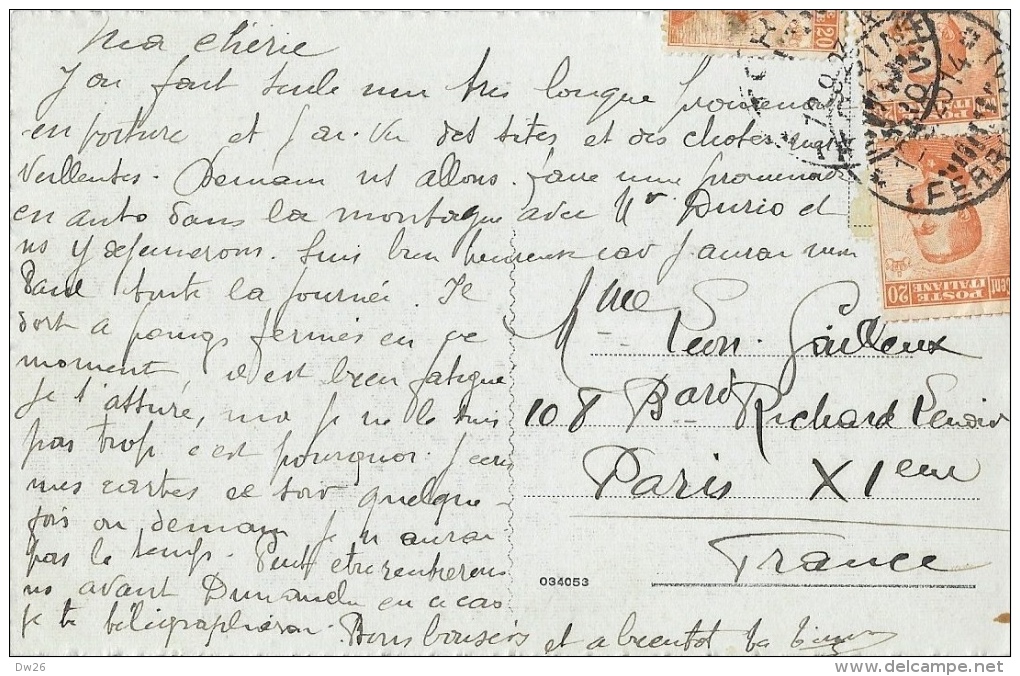 Ma chérie
J'ai fait seule une très longue promenade
en voiture et j'ai vu des sites et des choses mer-
veillentes. Demain ns allons faire une promenade
en auto dans la montagne avec Mr Durio et
ns y dejeunerons. Suis bien heureuse car j'aurai mon
Paul toute la journée. Il
dort à poings fermés en ce
moment, il est bien fatigué
je t'assure, moi je ne le suis
pas trop c'est pourquoi j'écris
mes cartes ce soir quelque-
fois que demain je n'aurai
pas le temps. Peut être rentrerons
ns avant Dimanche en ce cas
je te télégraphierai. Bons baisers et a bientot ta
Mme Léon Gailleux
108 Bard Richard Lenoir
Paris XIeme
France
034053
20
POSTE ITALIANE
cent 20
(FERR
Dw26
www.delcampe.net